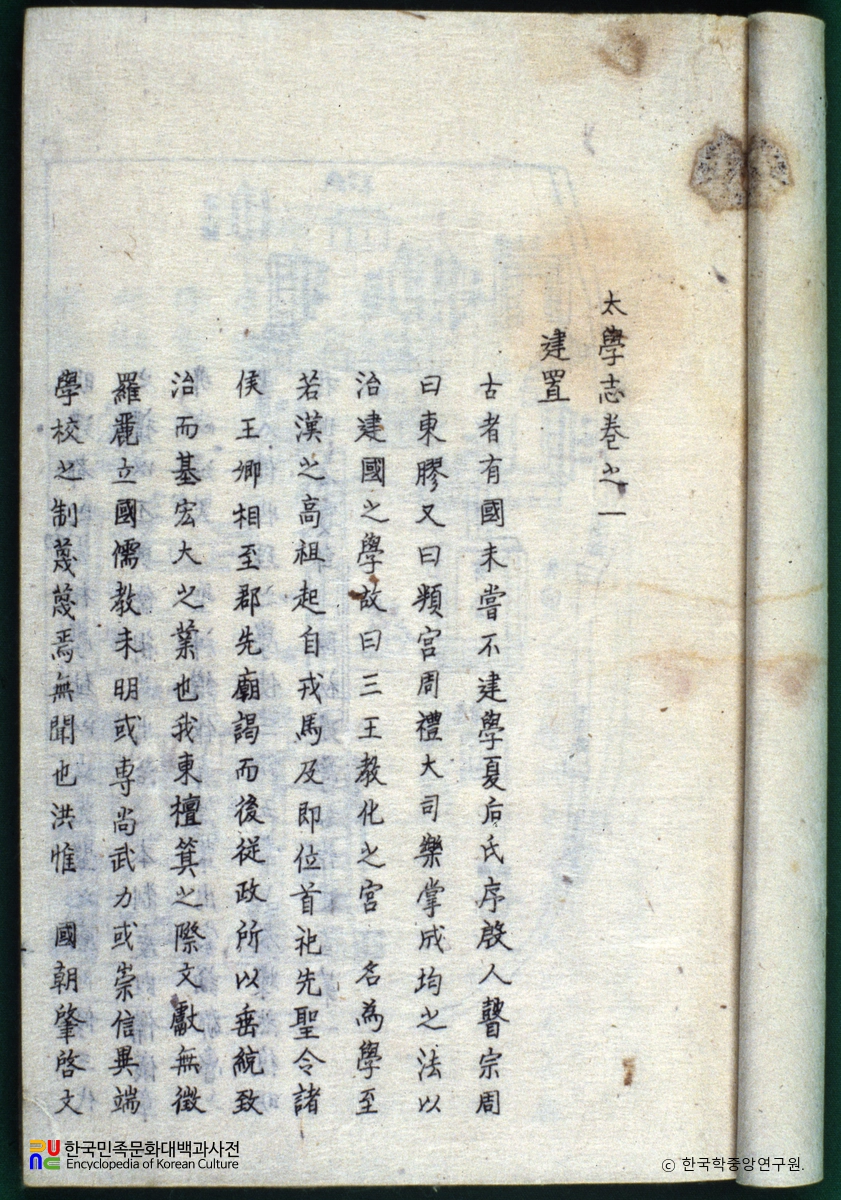 太學志卷之一
建置
古者有國未嘗不建學夏后氏序殷人瞽宗周
曰東膠又曰頖宮周禮大司樂掌成均之法以
治建國之學故曰三王教化之宮 名為學至
若漢之高祖起自戎馬及即位首祀先聖令諸
侯王卿相至郡先廟謁而後從政所以垂統致
治而基宏大之業也我東檀箕之際文獻無徵
羅麗立國儒教未明或專尚武力或崇信異端
學校之制蔑蔑焉無聞也洪惟 國朝肇啓文
한국민족문화대백과사전
Encyclopedia of Korean Culture
ⓒ 한국학중앙연구원.